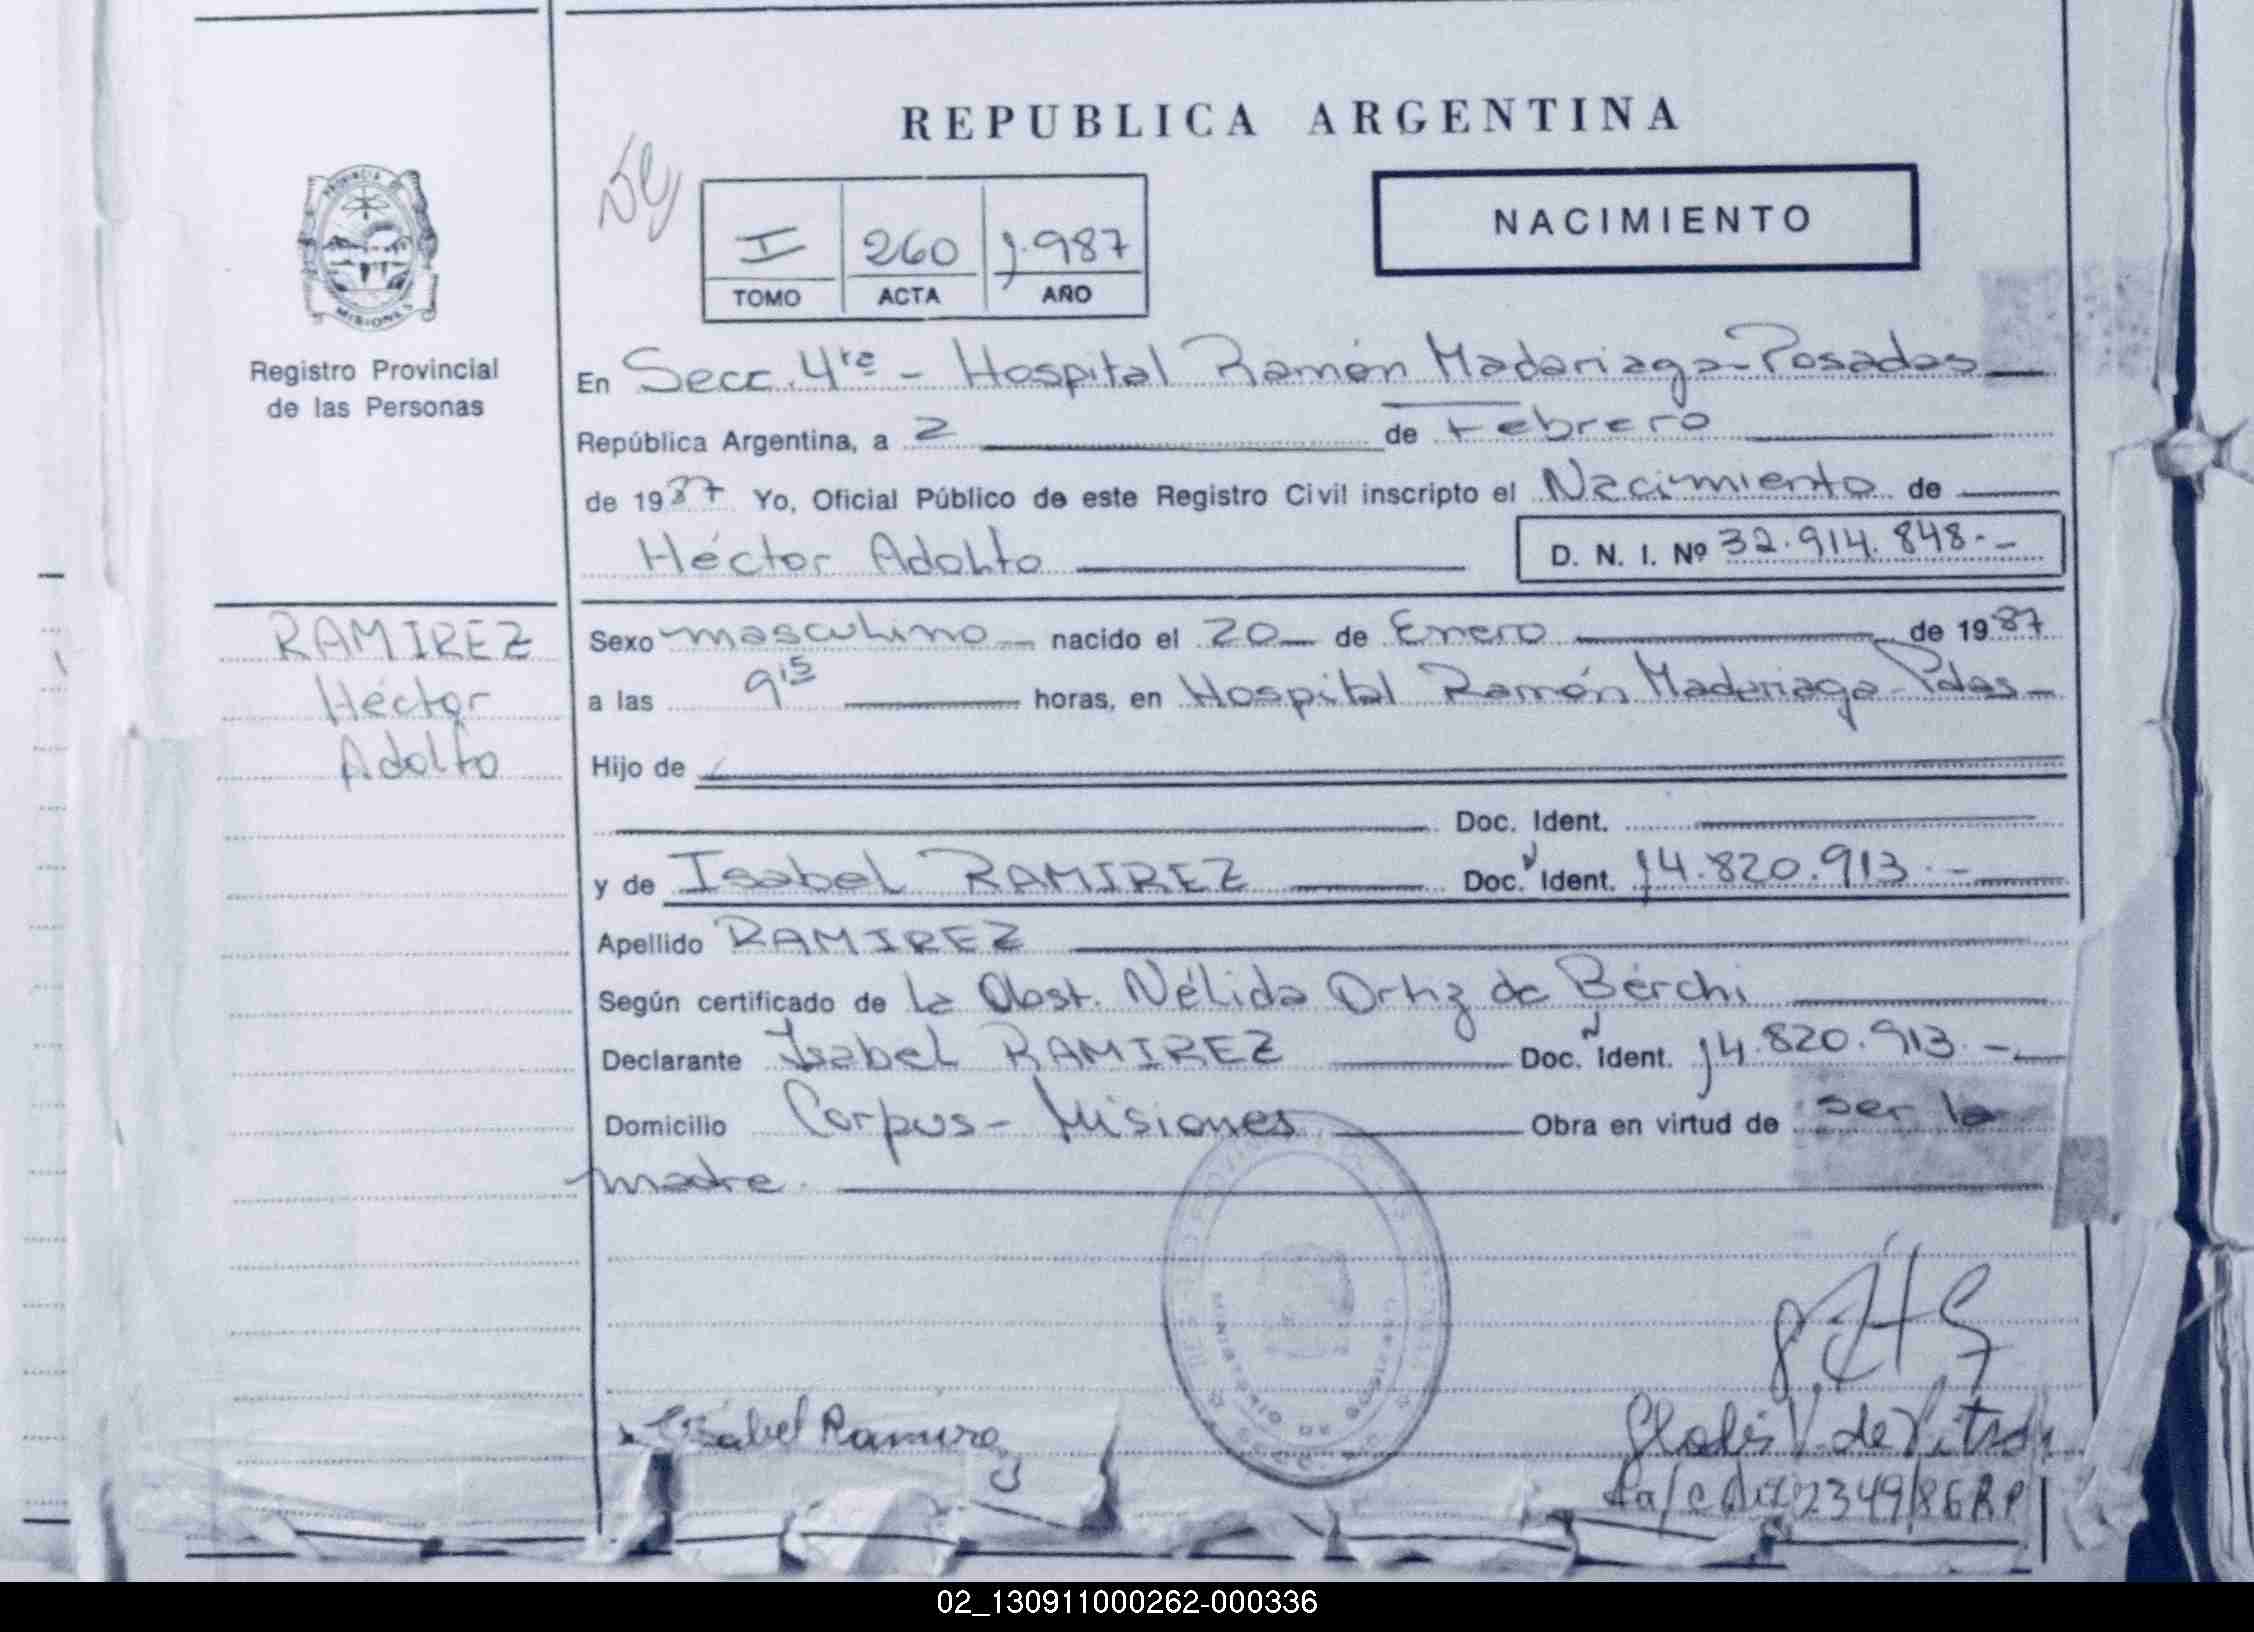 REPUBLICA ARGENTINA
PROVINCIA DE
MISIONES
Registro Provincial
de las Personas
I 260 1.987
TOMO ACTA AÑO
NACIMIENTO
En Secc. 4ta - Hospital Ramón Madariaga - Posadas
República Argentina, a 2 de Febrero
de 1987 Yo, Oficial Público de este Registro Civil inscripto el Nacimiento de
Héctor Adolfo D. N. I. Nº 32.914.848.-
RAMIREZ
Héctor
Adolfo
Sexo masculino nacido el 20 de Enero de 1987
a las 9 15 horas, en Hospital Ramón Madariaga - Pdas
Hijo de
Doc. Ident.
y de Isabel RAMIREZ Doc. Ident. 14.820.913.-
Apellido RAMIREZ
Según certificado de la Obst. Nélida Ortiz de Berchi
Declarante Isabel RAMIREZ Doc. Ident. 14.820.913.-
Domicilio Corpus - Misiones Obra en virtud de ser la
madre.
Isabel Ramirez
02_130911000262-000336